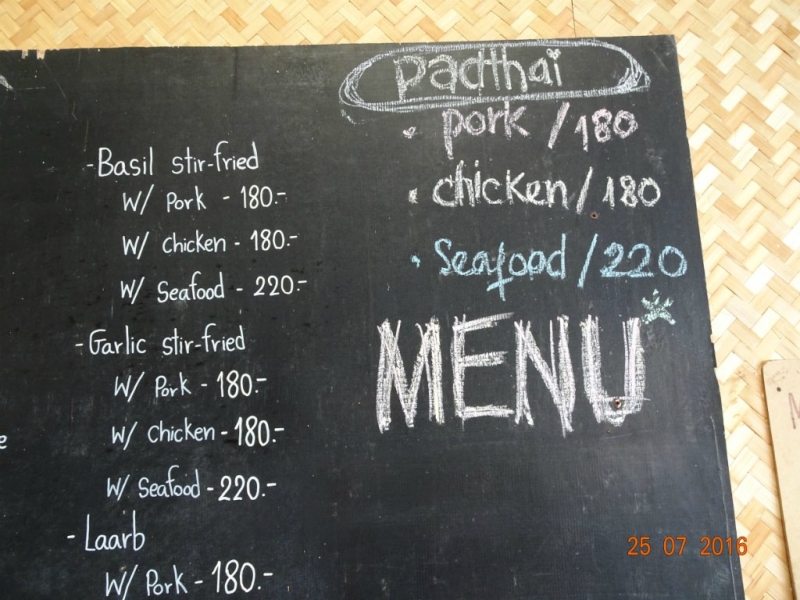 -Basil stir-fried
W/ Pork - 180.-
W/ chicken - 180.-
W/ Seafood - 220.-
-Garlic stir-fried
W/ Pork - 180.-
W/ Chicken - 180.-
W/ Seafood - 220.-
- Laarb
W/ Pork - 180.-
padthai
• pork / 180
• chicken / 180
• Seafood / 220
MENU
25 07 2016